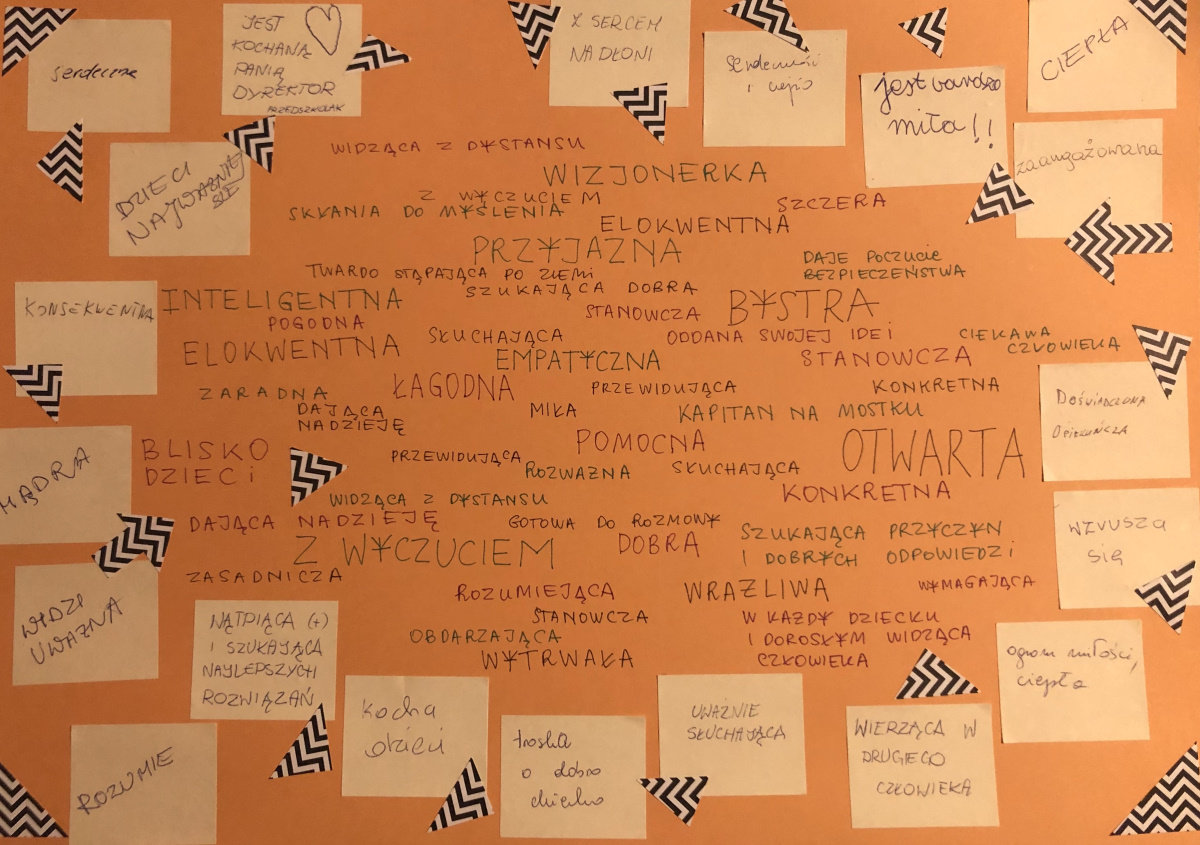 serdeczna
JEST
KOCHANĄ
PANIĄ
DYREKTOR
PRZEDSZKOLAK
Z SERCEM
NA DŁONI
serdeczność
i ciepło
jest bardzo
miła!!
CIEPŁA
zaangażowana
DZIECI
NAJWAŻNIEJ
SZE
WIDZĄCA Z DYSTANSU
WIZJONERKA
Z WYCZUCIEM
SKŁANIA DO MYŚLENIA
SZCZERA
ELOKWENTNA
PRZYJAZNA
DAJE POCZUCIE
BEZPIECZEŃSTWA
TWARDO STĄPAJĄCA PO ZIEMI
SZUKAJĄCA DOBRA
KONSEKWENTNA
INTELIGENTNA
POGODNA
STANOWCZA
BYSTRA
SŁUCHAJĄCA
ODDANA SWOJEJ IDEI
CIEKAWA
CZŁOWIEKA
ELOKWENTNA
EMPATYCZNA
STANOWCZA
ZARADNA
ŁAGODNA
PRZEWIDUJĄCA
KONKRETNA
DAJĄCA
NADZIEJĘ
MIŁA
KAPITAN NA MOSTKU
DOŚWIADCZONA
OPIEKUŃCZA
MĄDRA
BLISKO
DZIECI
POMOCNA
OTWARTA
PRZEWIDUJĄCA
ROZWAŻNA
SŁUCHAJĄCA
WIDZĄCA Z DYSTANSU
KONKRETNA
DAJĄCA NADZIEJĘ
GOTOWA DO ROZMOWY
SZUKAJĄCA PRZYCZYN
I DOBRYCH ODPOWIEDZI
WZRUSZA
się
Z WYCZUCIEM
DOBRA
ZASADNICZA
ROZUMIEJĄCA
WRAŻLIWA
WYMAGAJĄCA
WIDZI
UWAŻNA
WĄTPIĄCA (+)
I SZUKAJĄCA
NAJLEPSZYCH
ROZWIĄZAŃ
STANOWCZA
OBDARZAJĄCA
WYTRWAŁA
W KAŻDY DZIECKU
I DOROSŁYM WIDZĄCA
CZŁOWIEKA
ogrom miłości,
ciepła
kocha
dzieci
troska
o dobro
UWAŻNIE
SŁUCHAJĄCA
WIERZĄCA W
DRUGIEGO
CZŁOWIEKA
ROZUMIE